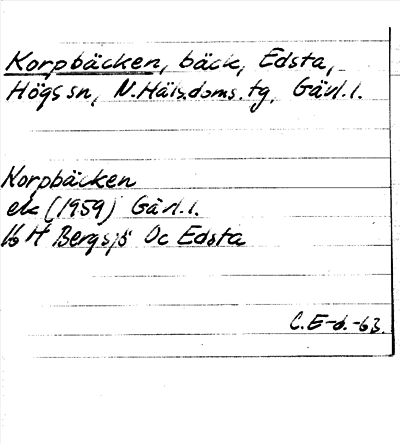 Korpbäcken, bäck, Edsta,
Högs sn, N.Häls.doms.tg, Gävl.l.
Korpbäcken
ek (1959) Gävl.l.
16 H Bergsjö Dc Edsta
C.E-d.-63.